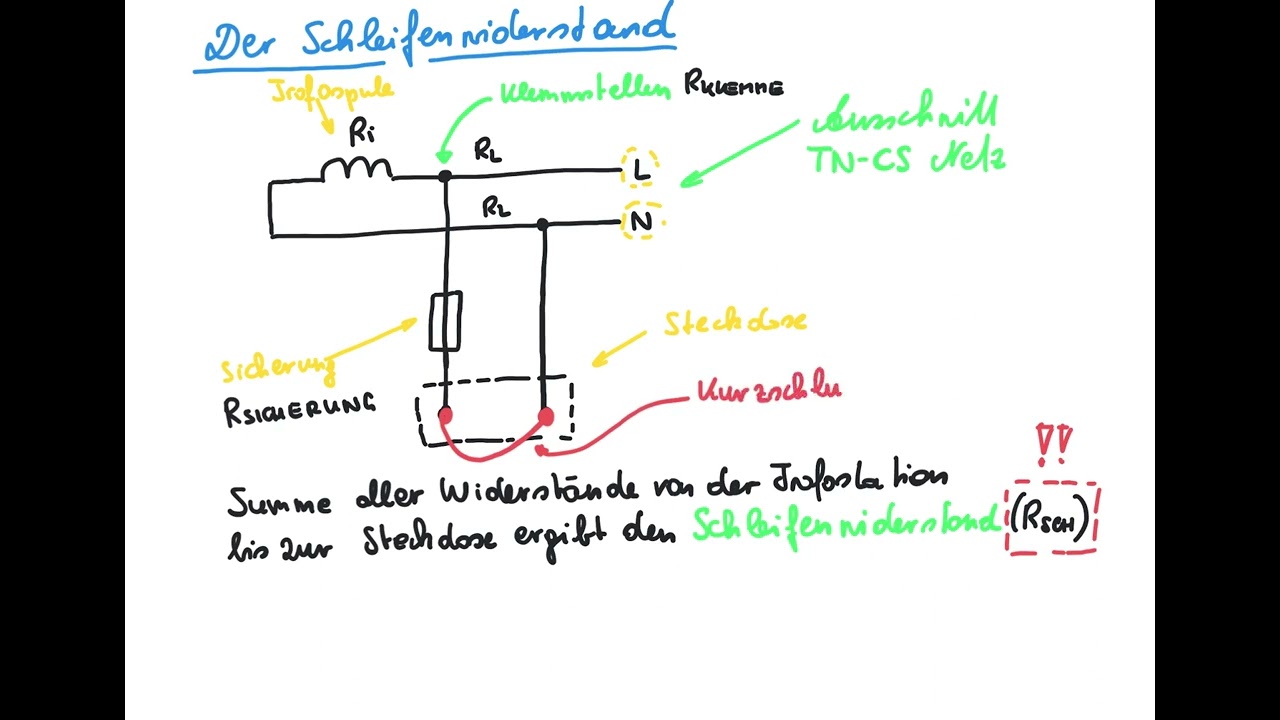 Der Schleifenwiderstand
Trafospule
Klemmstellen RKLEMME
Ausschnitt
TN-CS Netz
Ri
RL
L
RL
N
Steckdose
Sicherung
RSICHERUNG
Kurzschlu
!!
Summe aller Widerstände von der Trafostation
bis zur Steckdose ergibt den Schleifenwiderstand (RSCH)